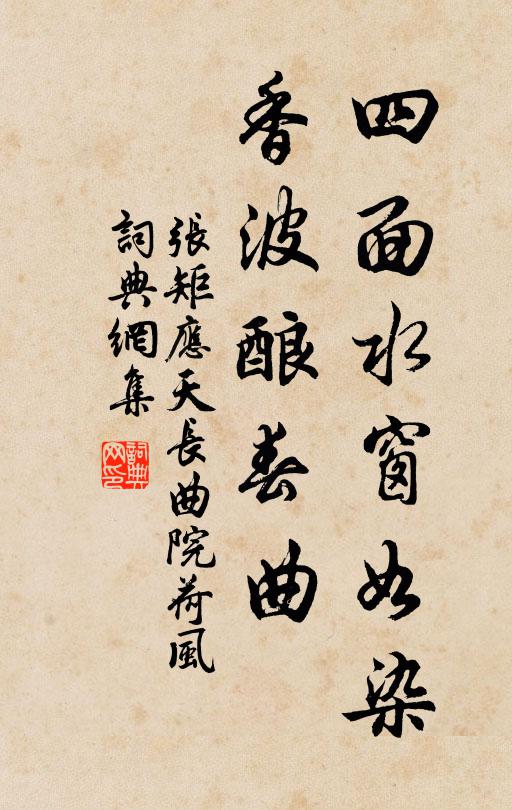 四面水窗如染
香波酿春曲
張矩應天長曲院荷風
詞典網集
詞典网印